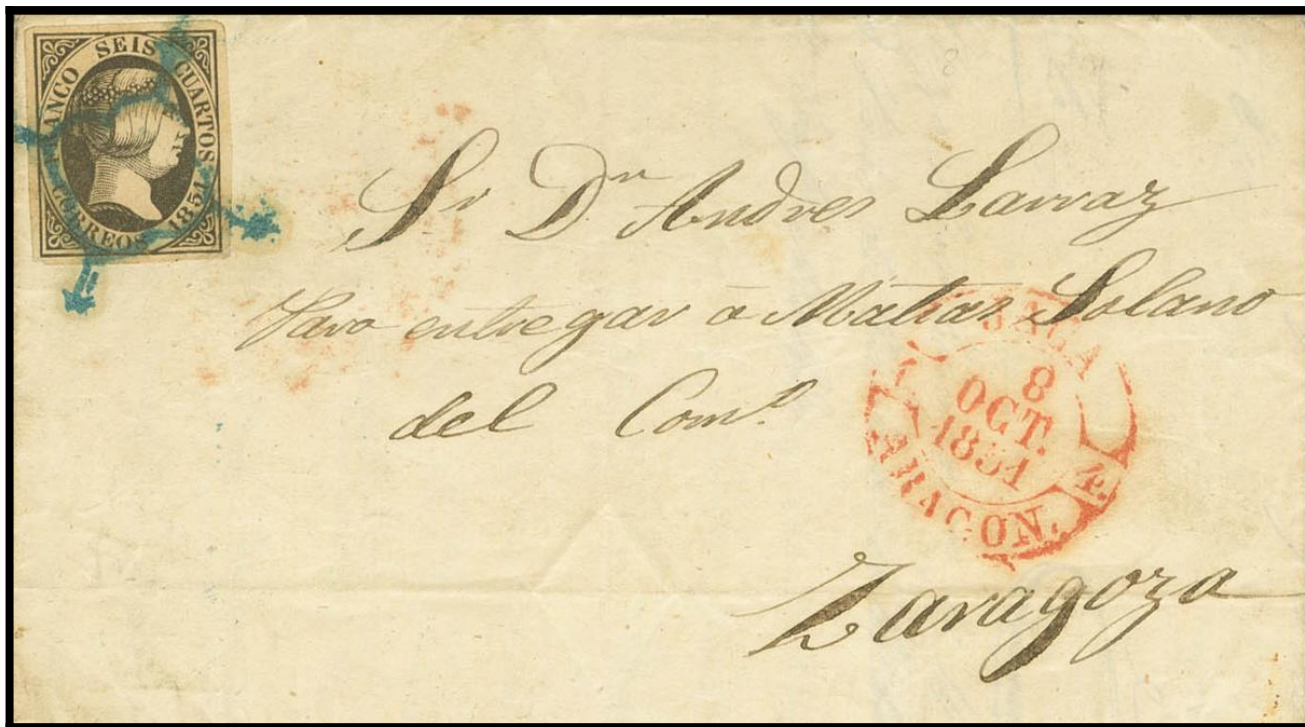 FRANCO SEIS CUARTOS
CORREOS 1851
Sr Dn Andres Larraz
Para entregar a Matias Solano
del Como
JACA
8
OCT.
1851
4.
ARAGON.
Zaragoza